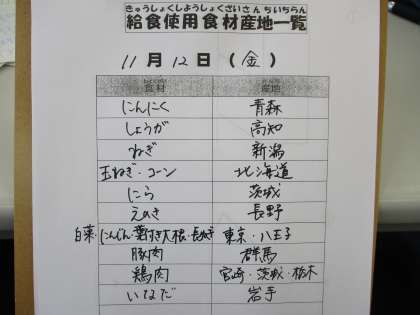 きゅうしょくしようしょくざいさんちいちらん
給食使用食材産地一覧
11月12日(金)
食材 産地
にんにく 青森
しょうが 高知
ねぎ 新潟
玉ねぎ・コーン 北海道
にら 茨城
えのき 長野
白菜・にんじん・葉付き大根・長ねぎ 東京・八王子
豚肉 群馬
鶏肉 宮崎・茨城・栃木
いなだ 岩手